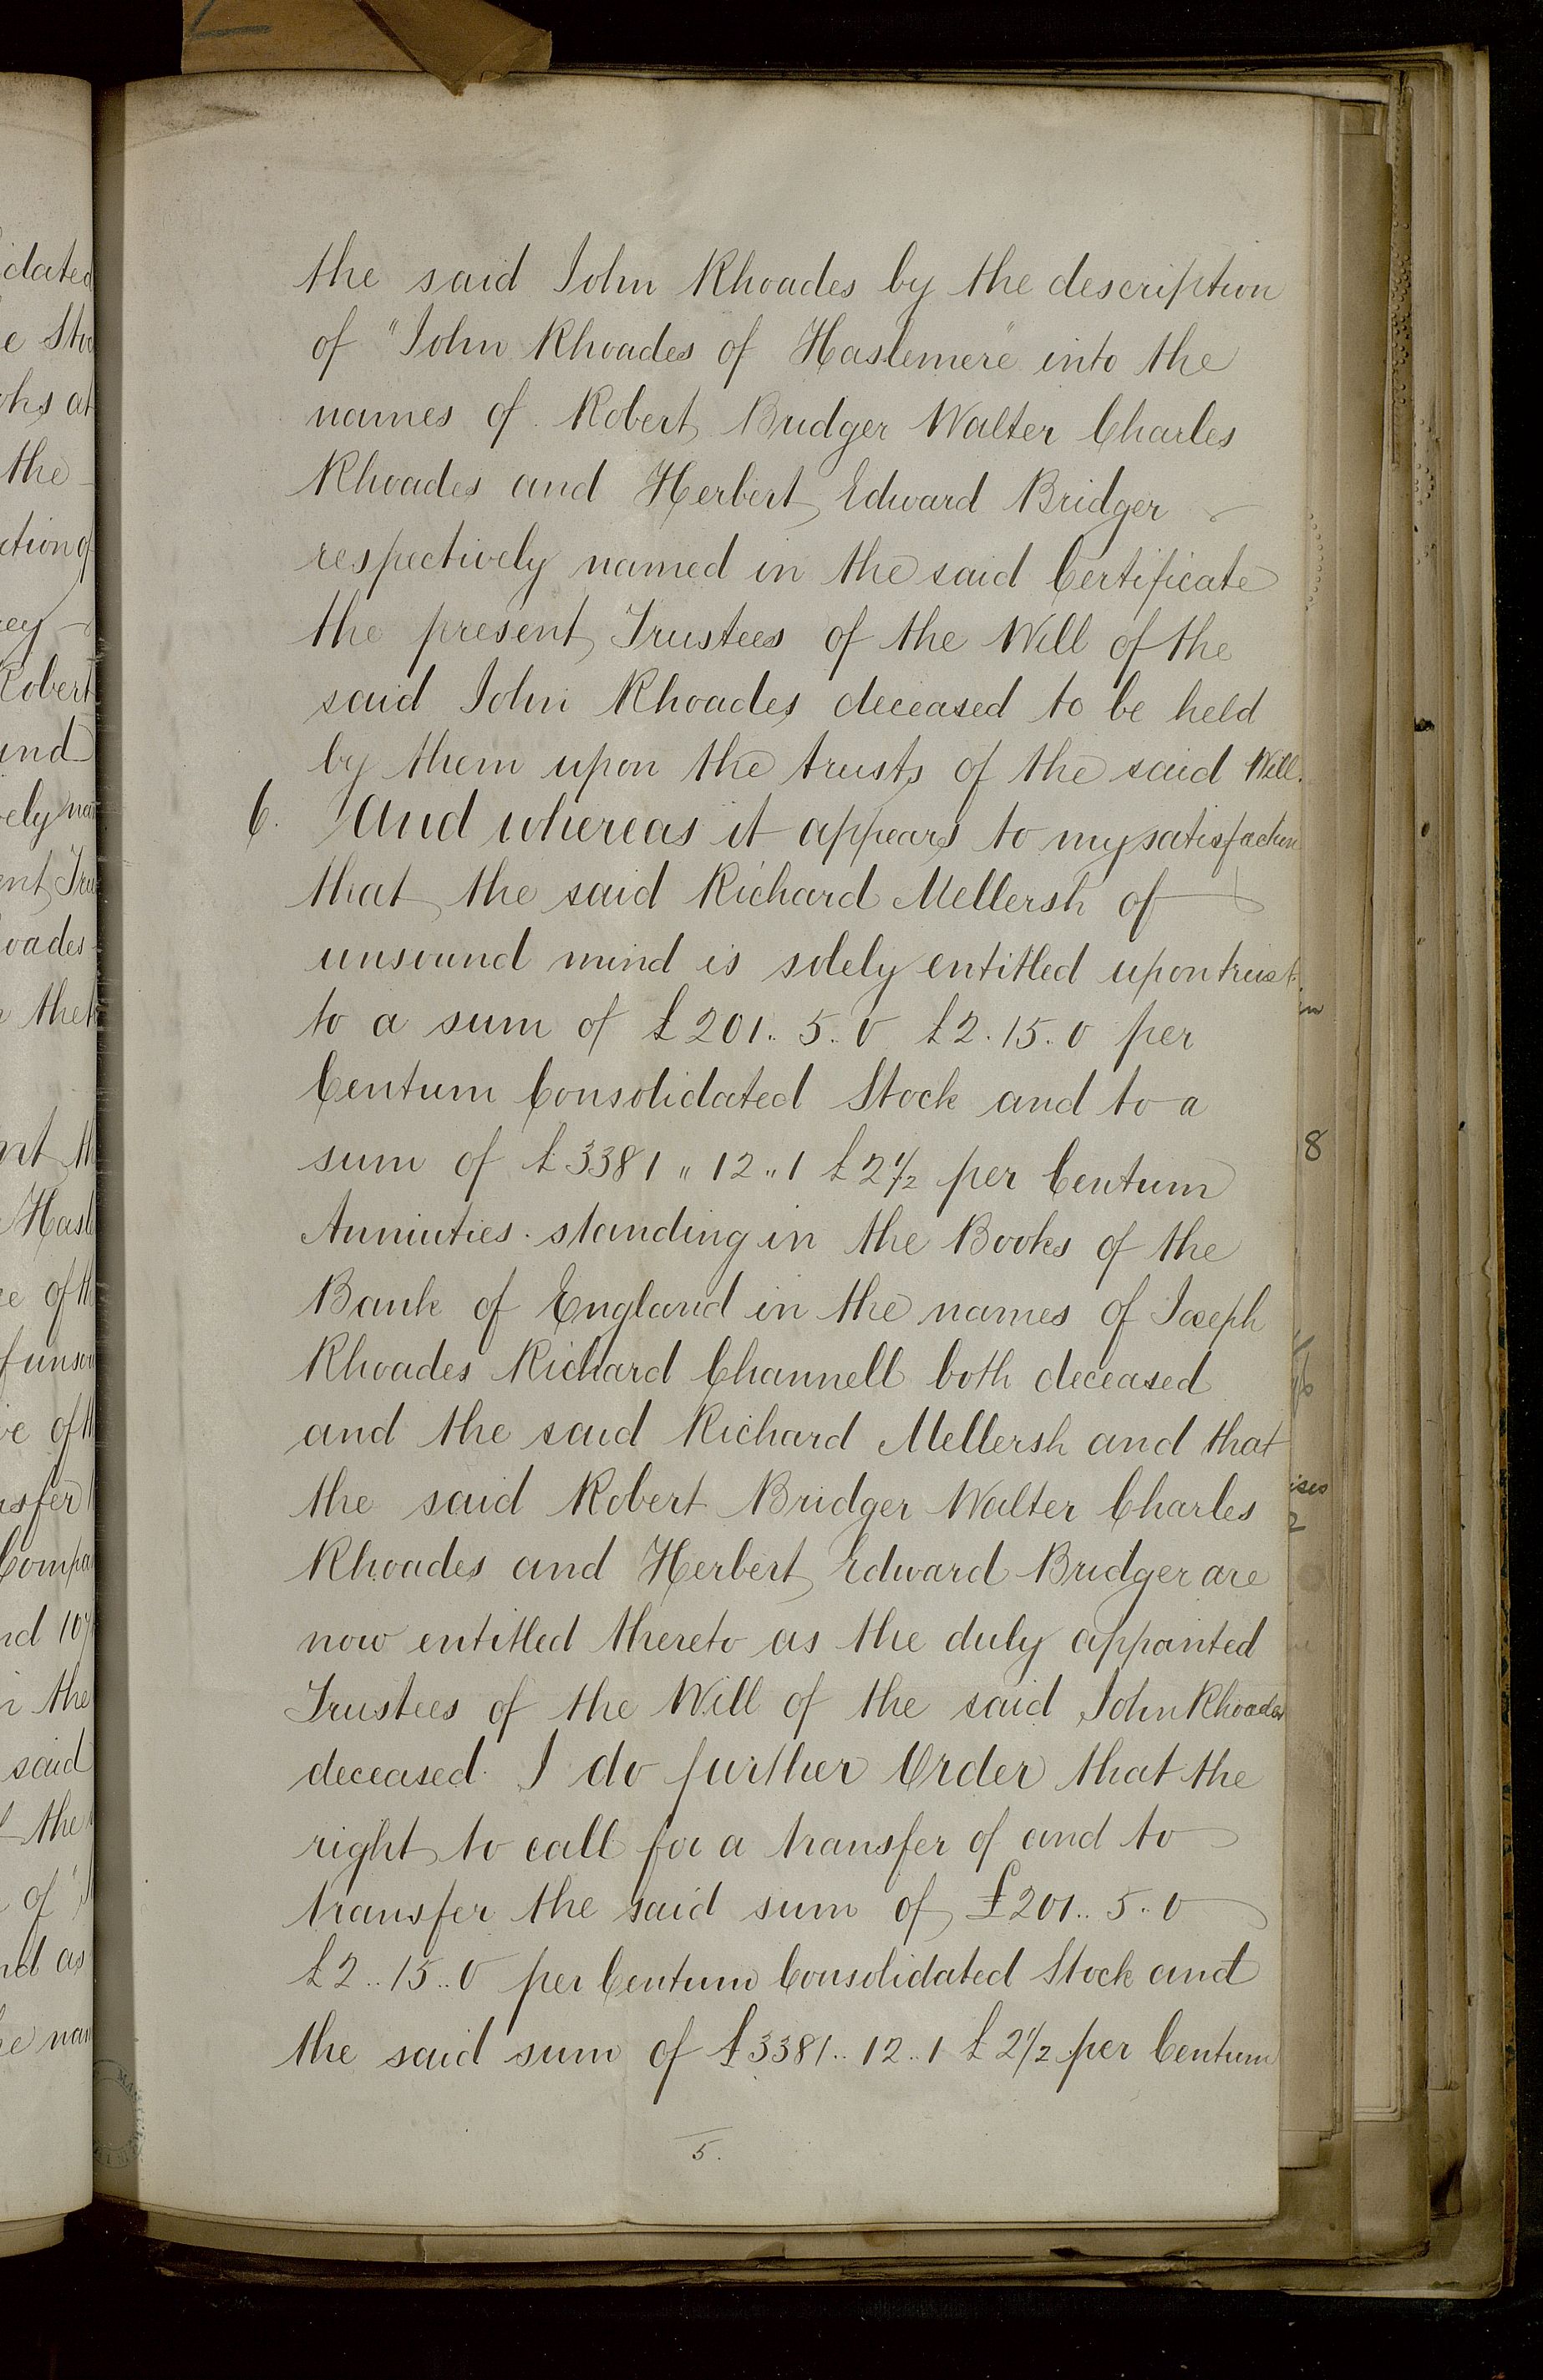 the said John Rhoades by the description
of "John Rhoades of Haslemere" into the
names of Robert Bridger Walter Charles
Rhoades and Herbert Edward Bridger
respectively named in the said Certificate
the present Trustees of the Will of the
said John Rhoades deceased to be held
by them upon the trusts of the said Will.
6. And whereas it appears to my satisfaction
that the said Richard Mellersh of
unsound mind is solely entitled upon trust
to a sum of £201..5..0 £2.15..0 per
Centum Consolidated Stock and to a
sum of £3381„12„1 £2½ per Centum
Annuities standing in the Books of the
Bank of England in the names of Joseph
Rhoades Richard Channell both deceased
and the said Richard Mellersh and that
the said Robert Bridger Walter Charles
Rhoades and Herbert Edward Bridger are
now entitled thereto as the duly appointed
Trustees of the Will of the said John Rhoades
deceased. I do further Order that the
right to call for a transfer of and to
transfer the said sum of £201..5..0
£2..15..0 per Centum Consolidated Stock and
the said sum of £3381..12..1 £2½ per Centum
5.
8